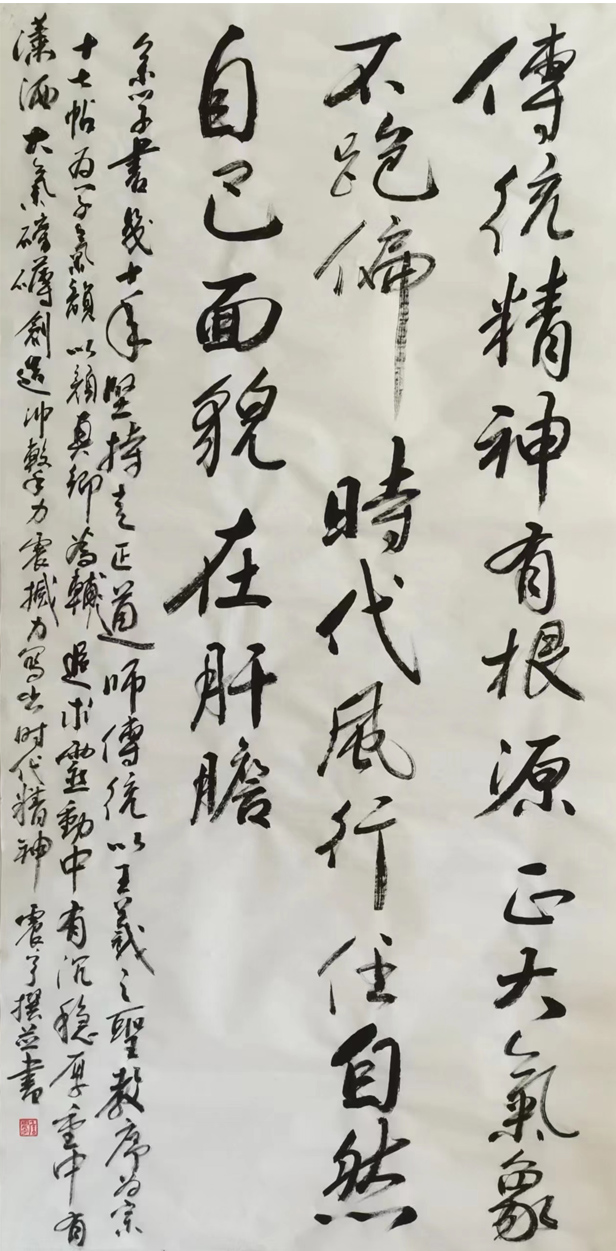 傳统精神有根源正大氣象
不跑偏時代風行任自然
自己面貌在肝膽
余学書幾十年堅持走正道師傳统以王羲之聖教序为宗
十七帖为子氣韻以顏真卿為輔追求靈動中有沉稳厚重中有
潇洒大氣磅礴創造冲擊力震撼力写出时代精神 震字撰並書